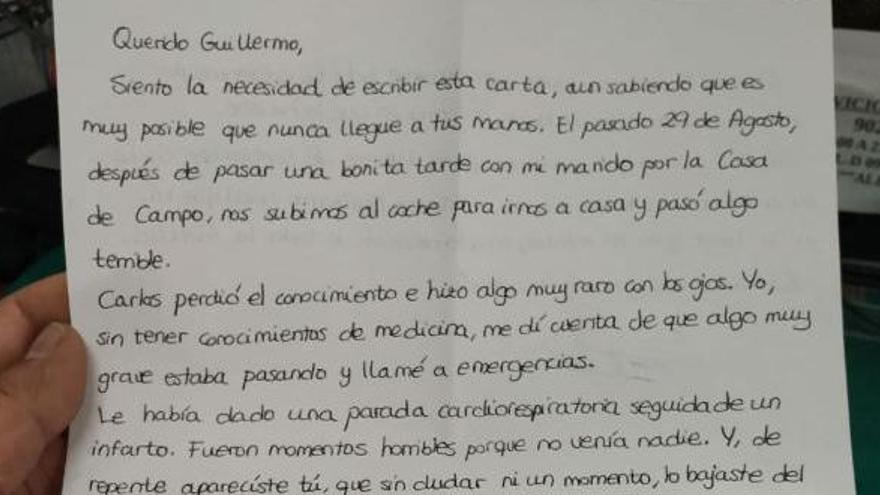 Querido Guillermo,
Siento la necesidad de escribir esta carta, aun sabiendo que es
muy posible que nunca llegue a tus manos. El pasado 29 de Agosto,
después de pasar una bonita tarde con mi marido por la Casa
de Campo, nos subimos al coche para irnos a casa y pasó algo
terrible.
Carlos perdió el conocimiento e hizo algo muy raro con los ojos. Yo,
sin tener conocimientos de medicina, me dí cuenta de que algo muy
grave estaba pasando y llamé a emergencias.
Le había dado una parada cardiorespiratoria seguida de un
infarto. Fueron momentos horribles porque no venía nadie. Y, de
repente apareciste tú, que sin dudar ni un momento, lo bajaste del
VICIO
902